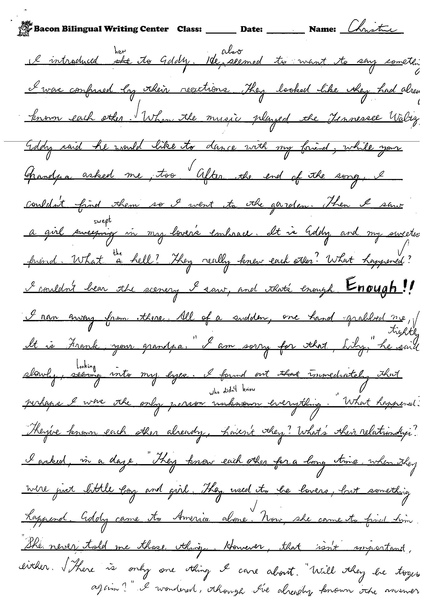 Bacon Bilingual Writing Center Class: Date: Name: Christine
her also
I introduced she to Eddy. He, seemed to want to say somethi
I was confused by their reactions. They looked like they had alrea
known each other. When the music played the Tennessee Waltz,
Eddy said he would like to dance with my friend, while your
Grandpa asked me, too. After the end of the song, I
couldn't find them so I went to the garden. Then I saw
swept
a girl sweeping in my lover's embrace. It is Eddy and my sweetes
the
friend. What a hell? They really knew each other? What happened?
I couldn't bear the scenery I saw, and that's enough. Enough!!
I ran away from there. All of a sudden, one hand grabbed me,
tightly
It is Frank, your grandpa. "I am sorry for that, Lily," he said
looking
slowly, seeing into my eyes. I found out that immediately that
who didn't know
perhaps I was the only person unknown everything. "What happened?
They've known each other already, haven't they? What's their relationship?
I asked, in a daze. "They knew each other for a long time, when they
were just little boy and girl. They used to be lovers, but something
happened. Eddy came to America alone. Now, she came to find him.
"She never told me those things. However, that isn't important,
either. There is only one thing I care about. "Will they be toge
again?" I wondered, though I've already known the answer